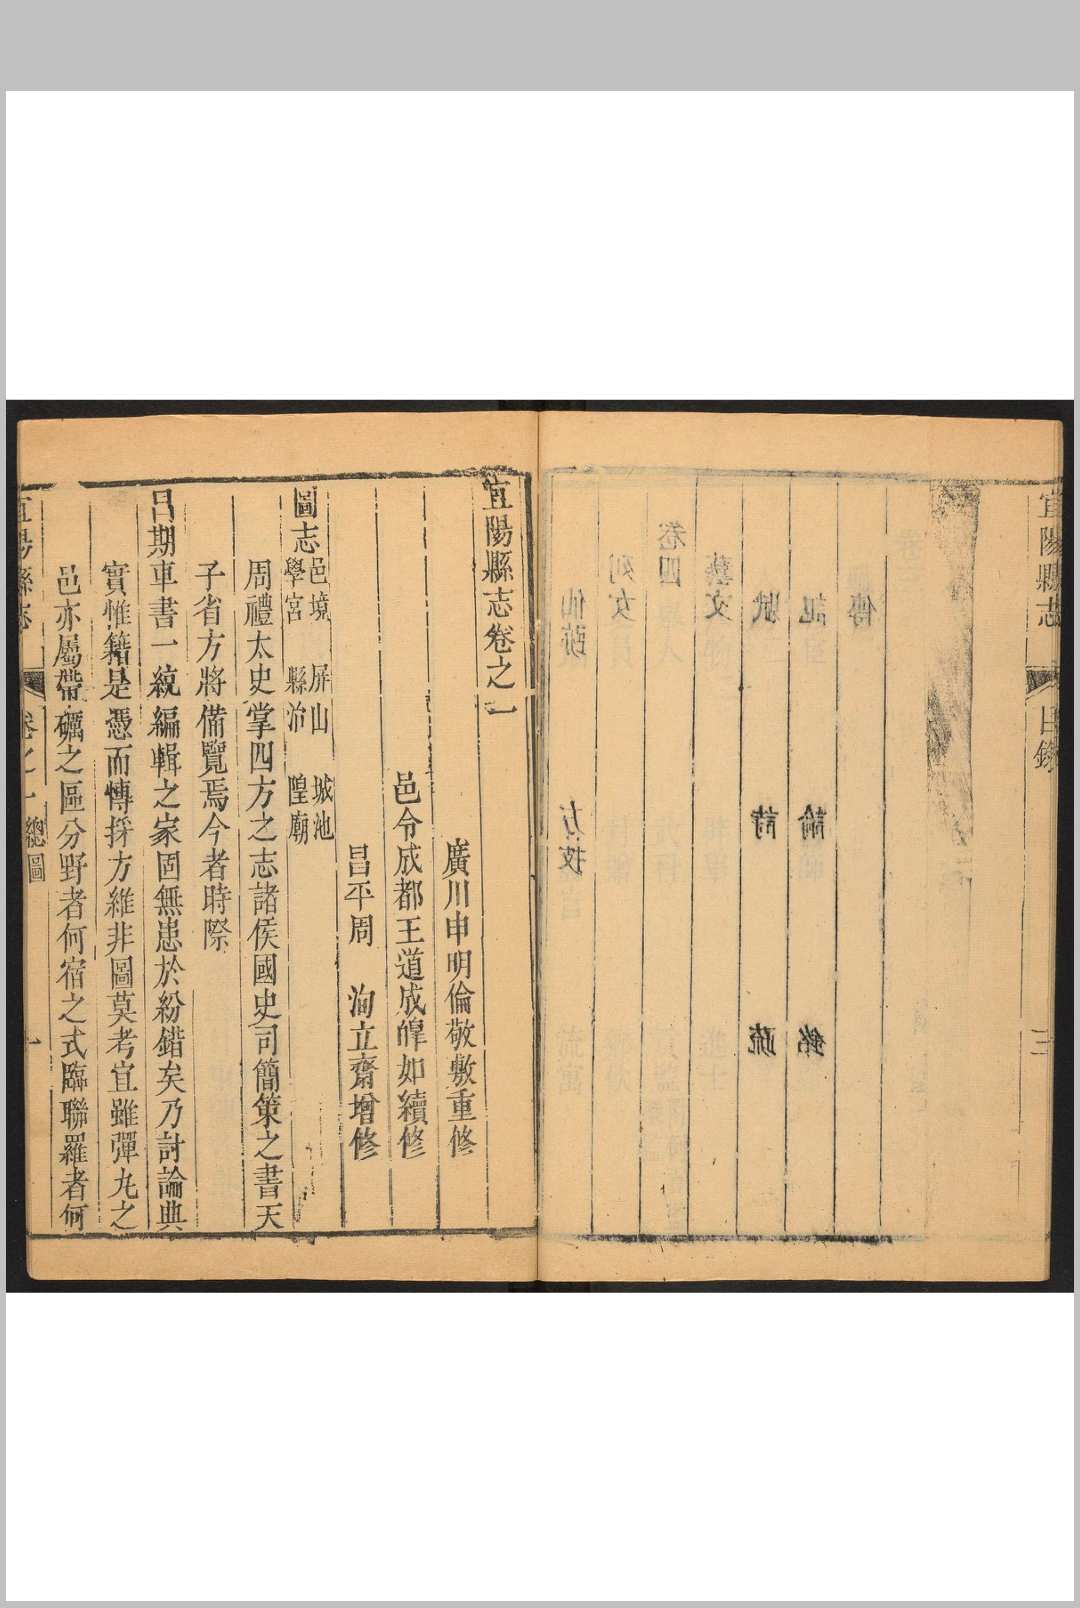 宜陽縣志
目錄
三
傳
記 論 銘
賦 詩 疏
藝文
卷四
列女
仙跡 方技
宜陽縣志卷之一
廣川申明倫敬敷重修
邑令成都王道成皥如續修
昌平周 洵立齋增修
圖志 邑境 屏山 城池
學宮 縣治 隍廟
周禮太史掌四方之志諸侯國史司簡策之書天
子省方將備覽焉今者時際
昌期車書一統編輯之家固無患於紛錯矣乃討論典
實惟籍是憑而慱採方維非圖莫考宜雖彈丸之
邑亦屬帶礪之區分野者何宿之式臨聯羅者何
宜陽縣志
卷之一 總圖
一